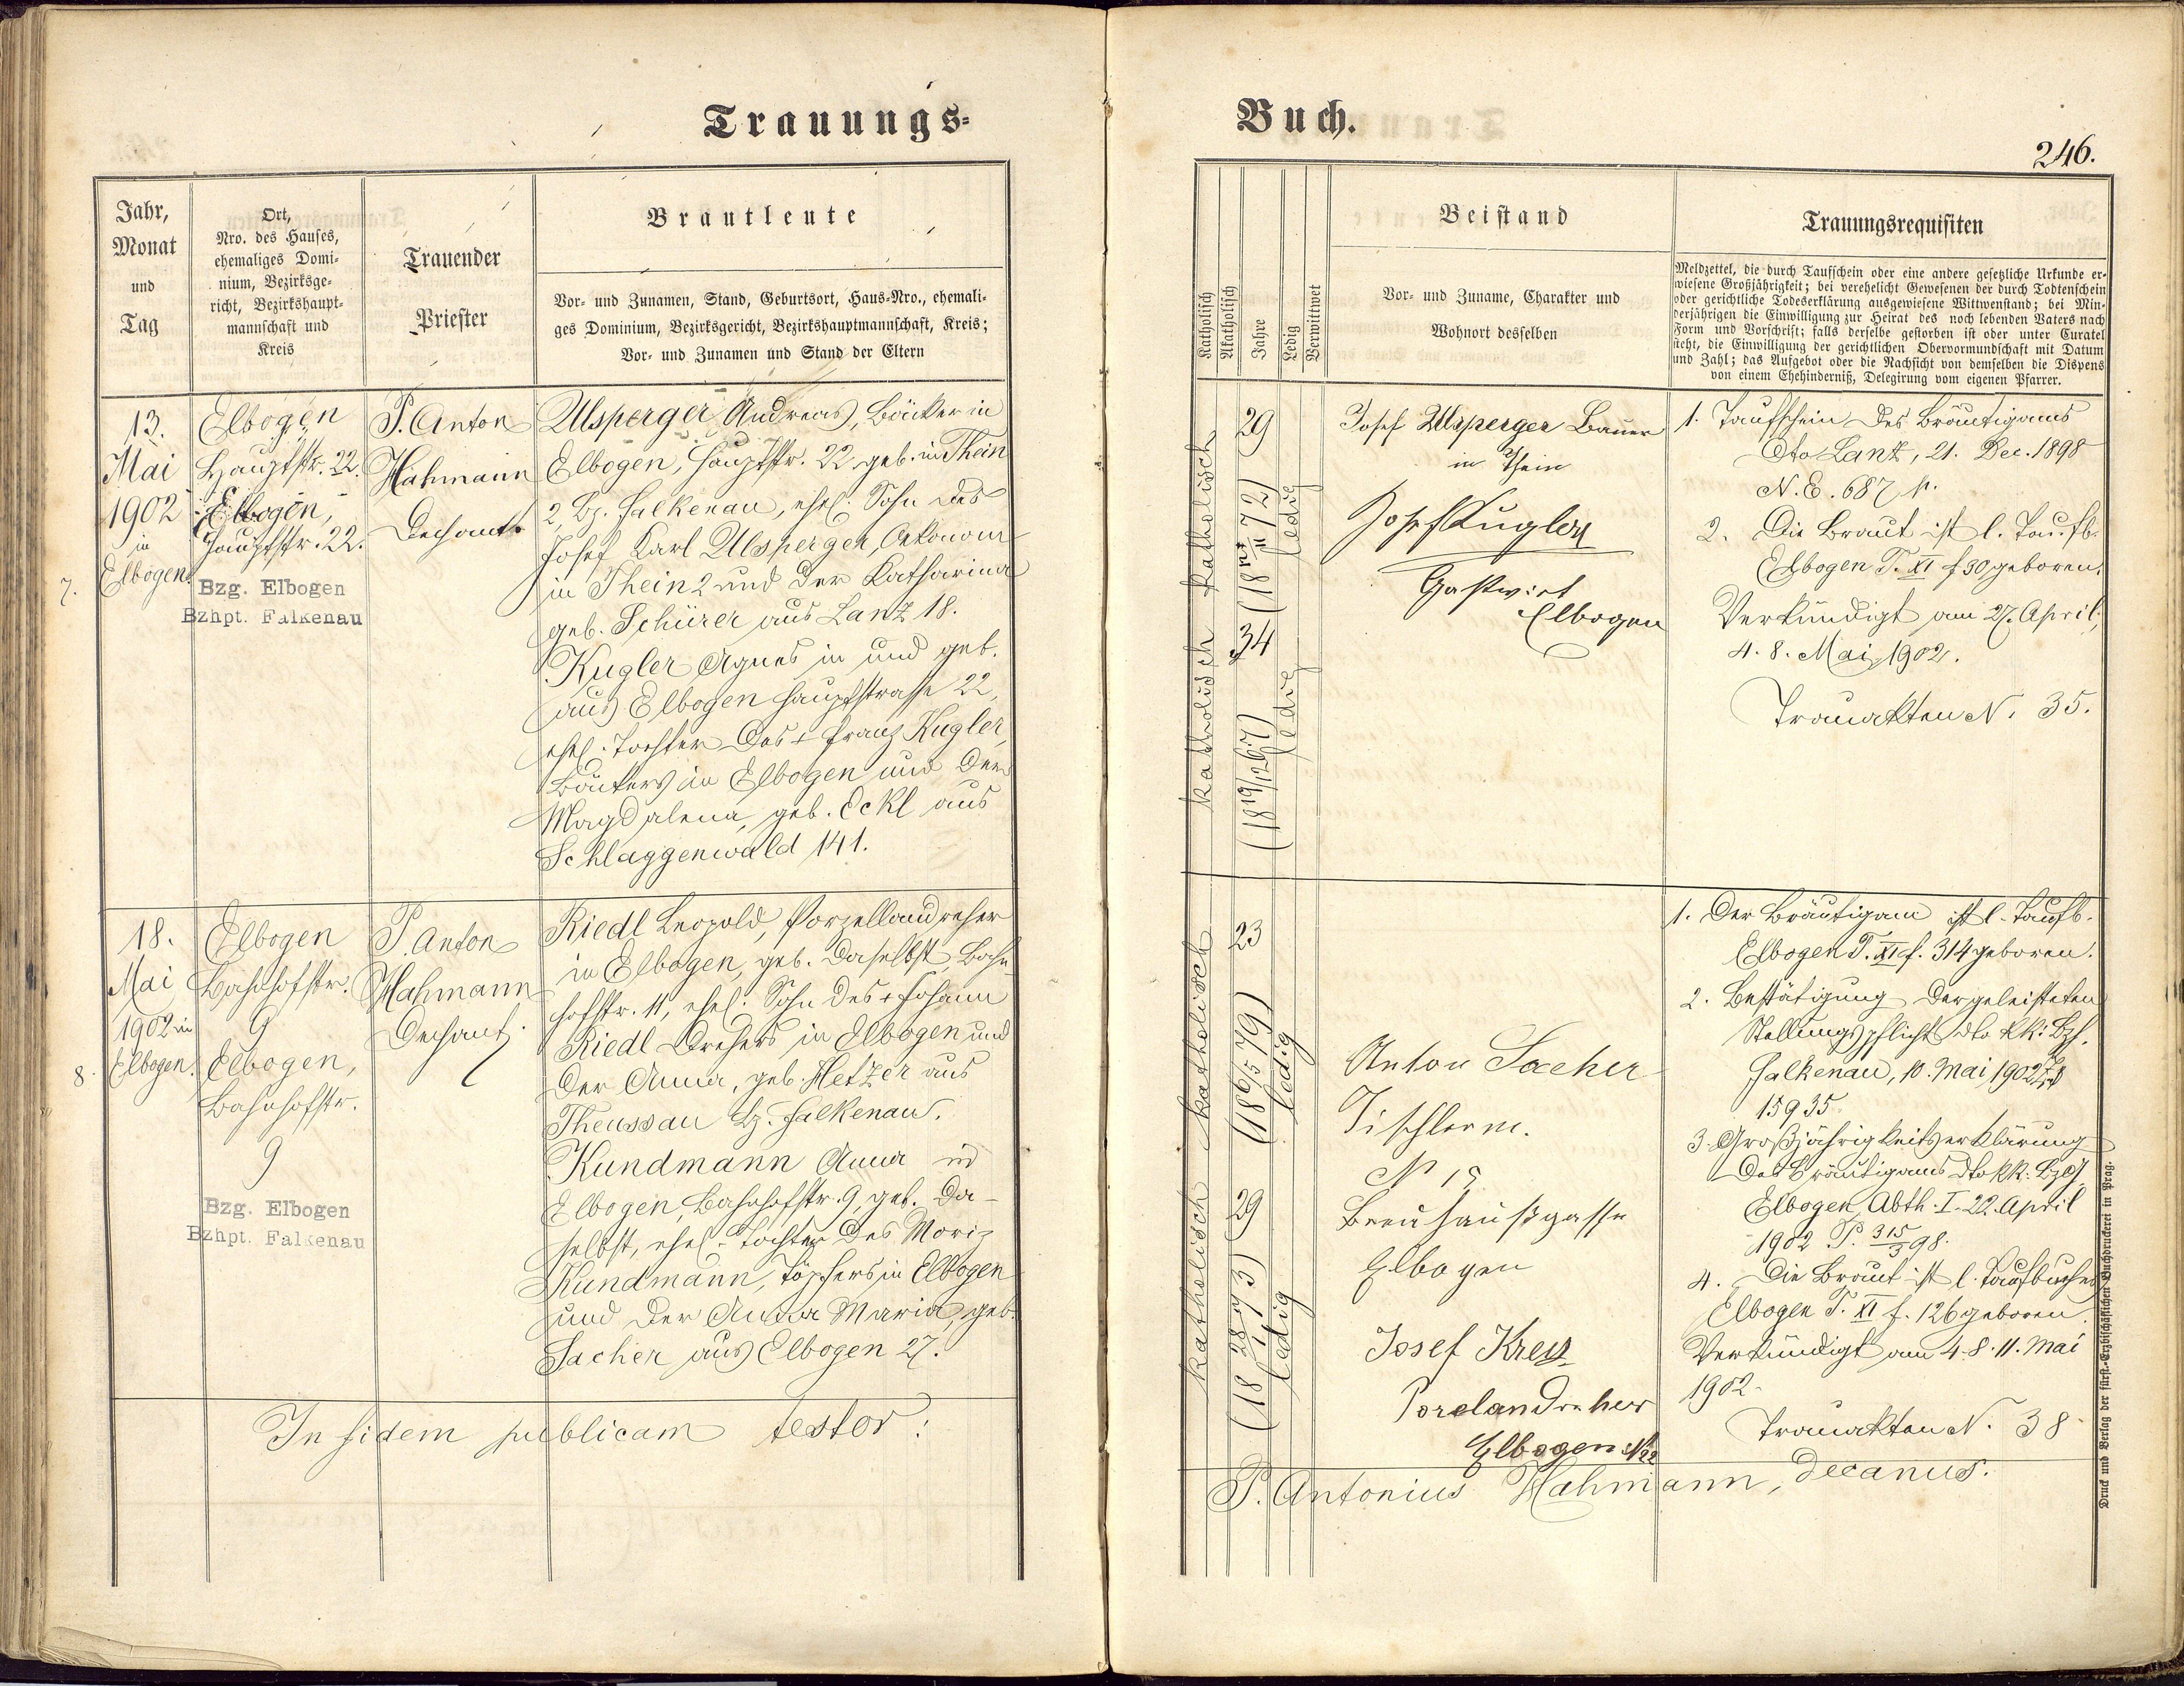 Trauungs-
Jahr,
Monat
und
Tag
Ort,
Nro. des Hauses,
ehemaliges Domi-
nium, Bezirksge-
richt, Bezirkshaupt-
mannschaft und
Kreis
Trauender
Priester
Brautleute
Vor- und Zunamen, Stand, Geburtsort, Haus-Nro., ehemali-
ges Dominium, Bezirksgericht, Bezirkshauptmannschaft, Kreis;
Vor- und Zunamen und Stand der Eltern
7.
13.
Mai
1902
in
Elbogen.
Elbogen
Hauptstr. 22.
Elbogen,
Hauptstr. 22.
Bzg. Elbogen
Bzhpt. Falkenau
P. Anton
Hahmann
Dechant.
Ulsperger Andreas, Bäcker in
Elbogen, Hauptstr. 22. geb. in Thein
2, Bz. Falkenau, ehel. Sohn des
Josef Karl Ulsperger, Oekonom
in Thein 2 und der Katharina
geb. Schürer aus Lanz 18.
Kugler Agnes in und geb.
aus Elbogen Hauptstrasse 22,
ehel. Tochter des + Franz Kugler,
Bäckers in Elbogen und der
Magdalena, geb. Eckl aus
Schlaggenwald 141.
8.
18.
Mai
1902 in
Elbogen.
Elbogen
Bahnhofstr.
9
Elbogen,
Bahnhofstr.
9
Bzg. Elbogen
Bzhpt. Falkenau
P. Anton
Hahmann
Dechant.
Riedl Leopold, Porzellandreher
in Elbogen, geb. daselbst, Bahn-
hofstr. 11, ehel. Sohn des + Johann
Riedl Drehers in Elbogen und
der Anna, geb. Hetzer aus
Theussau Bz. Falkenau.
Kundmann Anna in
Elbogen, Bahnhofstr. 9, geb. da-
selbst, ehel. Tochter des Moriz
Kundmann, Töpfers in Elbogen
und der Anna Maria, geb.
Sacher aus Elbogen 27.
In fidem publicam testor:
Buch.
246.
Katholisch
Akatholisch
Jahre
Ledig
Verwittwet
Beistand
Vor- und Zuname, Charakter und
Wohnort desselben
Trauungsrequisiten
Meldzettel, die durch Taufschein oder eine andere gesetzliche Urkunde er-
wiesene Großjährigkeit; bei verehelicht Gewesenen der durch Todtenschein
oder gerichtliche Todeserklärung ausgewiesene Wittwenstand; bei Min-
derjährigen die Einwilligung zur Heirat des noch lebenden Vaters nach
Form und Vorschrift; falls derselbe gestorben ist oder unter Curatel
steht, die Einwilligung der gerichtlichen Obervormundschaft mit Datum
und Zahl; das Aufgebot oder die Nachsicht von demselben die Dispens
von einem Ehehinderniß, Delegirung vom eigenen Pfarrer.
katholisch
29
ledig
katholisch
34
(18 19/12 67)
ledig
Josef Ulsperger Bauer
in Thein
Josef Kugler
Gastwirt
Elbogen
1. Taufschein des Bräutigams
dto Lanz, 21. Dec. 1898
N. E. 687 p.
2. Die Braut ist l. Taufb.
Elbogen T. XI f 30 geboren.
Verkündigt am 27. April,
4. 8. Mai 1902.
Trauakten N. 35.
katholisch
23
(18 6/5 79)
ledig
katholisch
29
(18 28/11 73)
ledig
Anton Sacher
Tischlerm.
Nº 15
Breuhausgasse
Elbogen
Josef Kreuz
Porclandreher
Elbogen Nº 22
1. Der Bräutigam ist l. Taufb.
Elbogen T. XI f. 314 geboren.
2. Bestätigung der geleisteten
Stellungspflicht dto kk. Bzh.
Falkenau, 10. Mai 1902
15935.
3. Großjährigkeitserklärung
des Bräutigams dto kk. Bzg.
Elbogen, Abth. I. 22. April
1902 P. 315/3 98.
4. Die Braut ist l. Taufbuches
Elbogen T. XI f. 126 geboren.
Verkündigt am 4. 8. 11. Mai
1902.
Trauakten N. 38
P. Antonius Hahmann, decanus.
Druck und Verlag der fürst.-Erzbischöflichen Buchdruckerei in Prag.